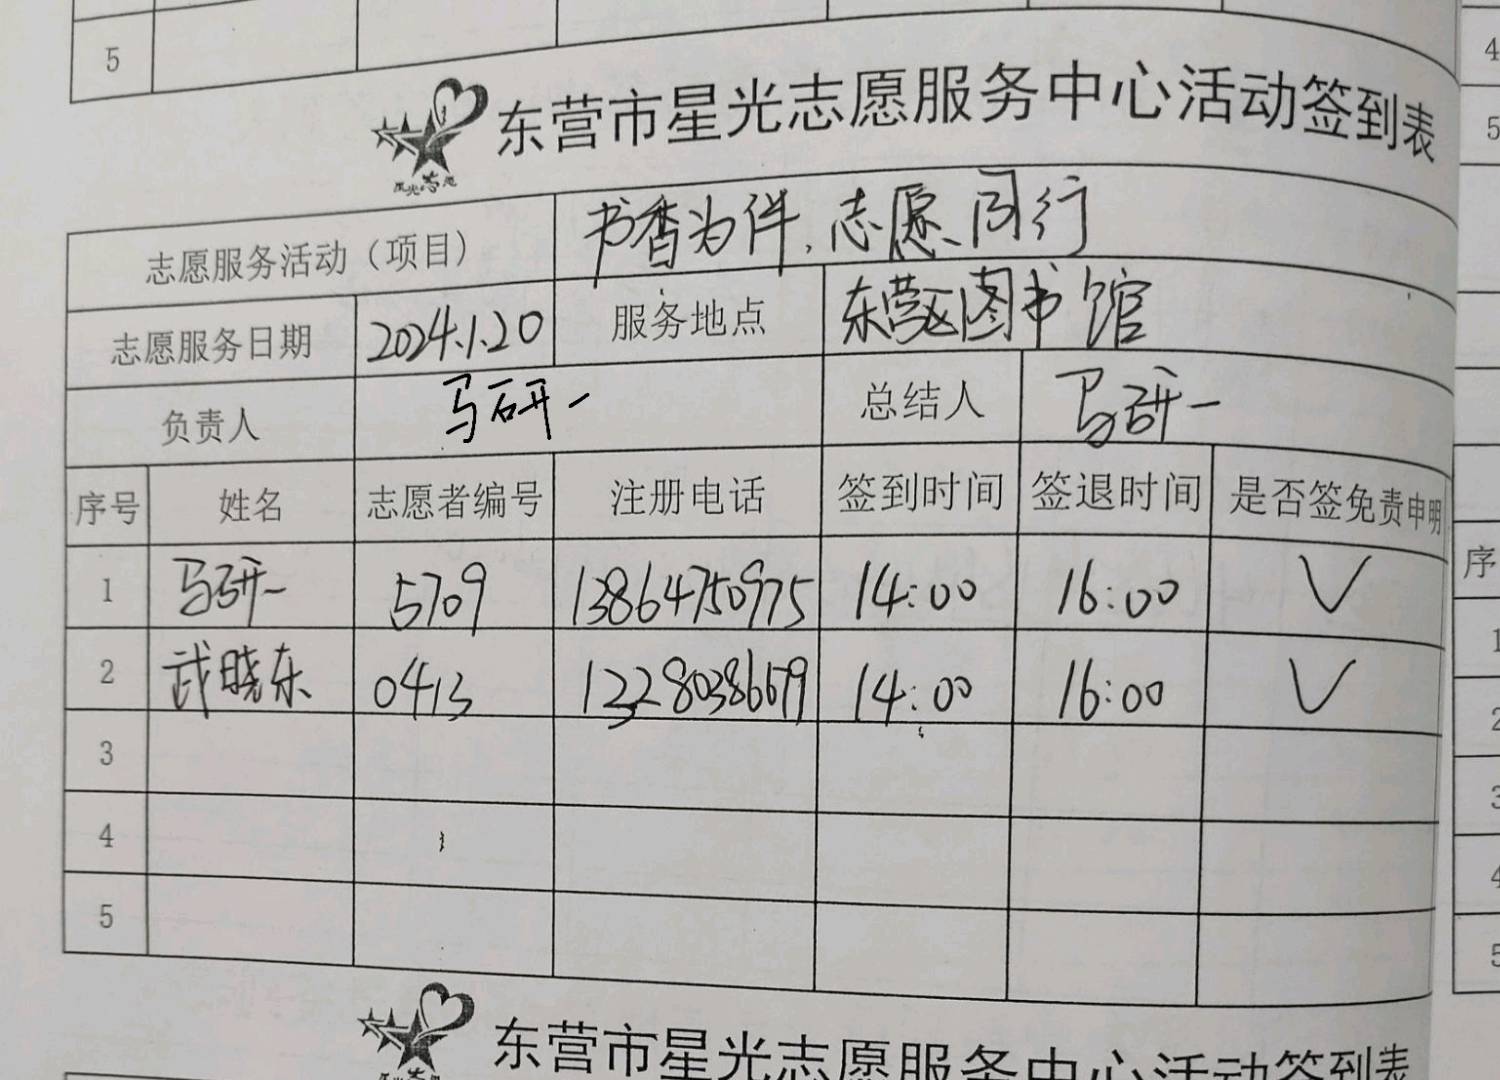 5
东营市星光志愿服务中心活动签到表
星光志愿
志愿服务活动（项目） 书香为伴，志愿同行
志愿服务日期 2024.1.20 服务地点 东营区图书馆
负责人 马研一 总结人 马研一
序号 姓名 志愿者编号 注册电话 签到时间 签退时间 是否签免责申明
1 马研一 5709 13864750975 14:00 16:00 √
2 武晓东 0413 14:00 16:00 √
3
4
5
东营市星光志愿服务中心活动签到表
4
5
序
1
2
3
4
5